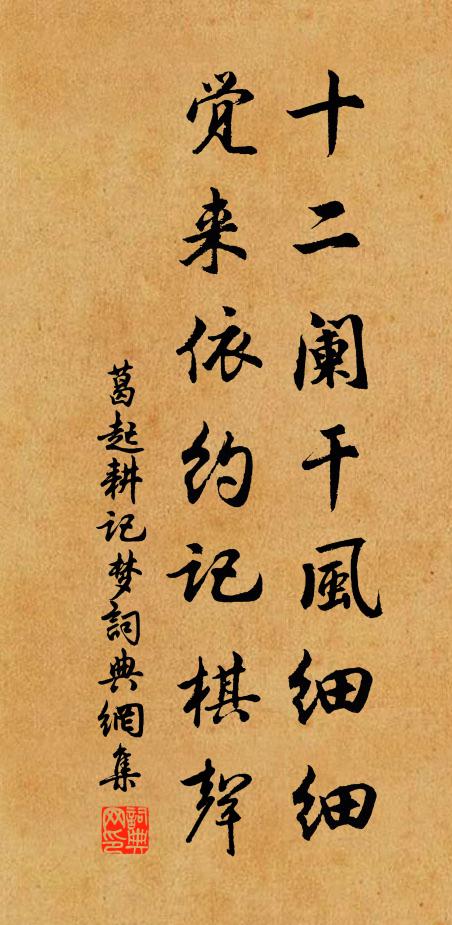 十二阑干風细细
觉来依约记棋聲
葛起耕记梦詞典網集
詞典网印